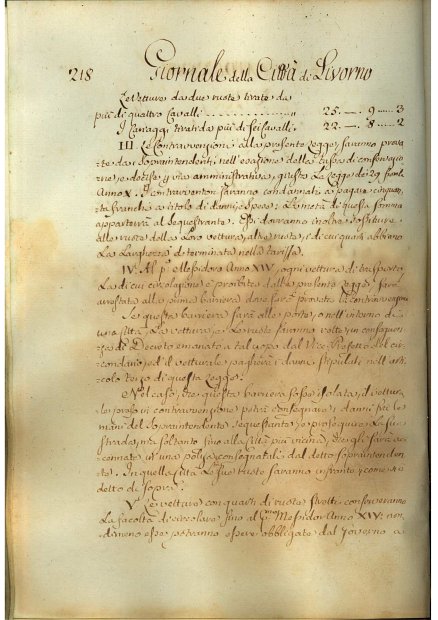 218 Giornale della Città di Livorno
Le Vetture da due ruote tirate da
più di quattro Cavalli .................. 25 ---- 9 ---- 3
I Carraggi tirati da più di sei Cavalli. 22 ---- 8 ---- 2
III. Le Contravvenzioni alla presente Legge, saranno prova-
te da' Sopraintendenti nell'esazione della tassa di
e decise p via amministrativa, giusto La Legge de' 29
Anno X. I contraventori saranno condannati a pagare cinquan-
ta Franchi a titolo di danni, e Spese: La metà di questa somma
apparterrà al Sequestrante. Essi dovranno inoltre sostituire
alle ruote della Loro vettura, altre ruote, di cui quarti abbiano
La Larghezza determinata nella tariffa.
IV. Al p. Messidoro Anno XIV, ogni vettura di trasporto,
La di cui circolazione è proibita dalla presente Legge, sarà
arrestata alla prima barriera dove sarà provata la contravvenzione
Se questa barriera sarà alle porte, o nell'interno di
una Città, La vettura, e Le ruote saranno rotte in conseguen-
za di Decreto emanato a tal uopo dal Vice Prefetto del cir-
condario, ed il vetturale pagherà i danni stipulati nell'arti-
colo terzo di questa Legge.
Nel caso, che questa barriera fosse isolata, il vettura-
le preso in contravvenzione potrà consegnare i danni fra le
mani del Sopraintendente Sequestrante, e proseguire La sua
strada, ma soltanto fino alla Città più vicina, che gli sarà ac-
cennata in una polizza consegnatali dal detto sopraintenden-
te. In quella Città Le sue ruote saranno infrante, come si è
detto di sopra.
V. Le vetture con quarti di ruote stretti conserveranno
La facoltà di circolare fino al p.mo Messidor Anno XIV: non-
dimeno esse potranno essere obbligate dal Governo a